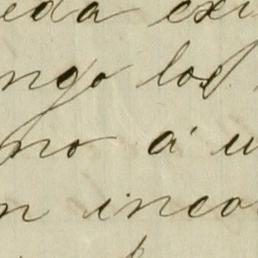 eda exi
ngo los
no á u
n inco